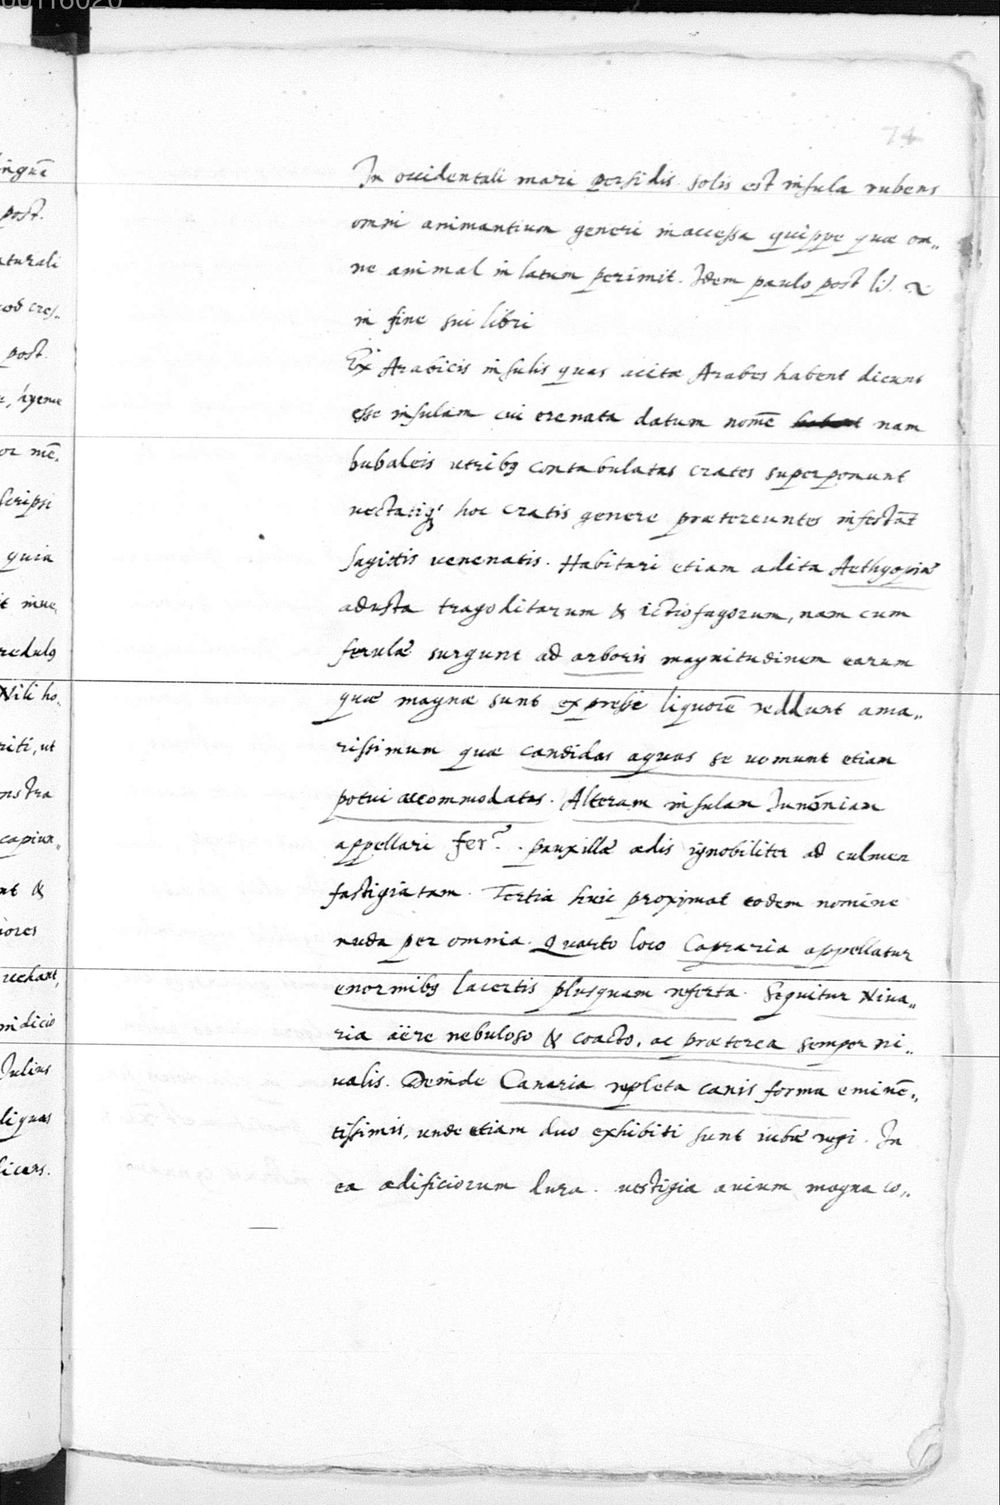 00116020
74
In occidentali mari persidis solis est insula rubens
omni animantium generi inaccessa quippe quæ om„
ne animal in latum perimit. Idem paulo post li. &
in fine sui libri
Ex Arabicis insulis quas acitæ Arabes habent dicunt
esse insulam cui erenata datum nomē nam
bubaleis utribꝫ contabulatas crates superponunt
vectatiqꝫ hoc cratis genere prætereuntes infestāt
sagittis venenatis. Habitari etiam adita Aethyopiæ
adusta tragoditarum & ictiofagorum, nam cum
ferulæ surgunt ad arboris magnitudinem earum
quæ magnæ sunt expressæ liquorē reddunt ama„
rissimum quæ candidas aquas se vomunt etiam
potui accommodatas. Alteram insulam Iunoniam
appellari fer.. pauxillæ ædis ignobiliter ad culmen
fastigiatam. Tertia huic proximat eodem nomine
nuda per omnia. Quarto loco Capraria appellatur
enormibꝫ lacertis plusquam referta. Sequitur Niva„
ria aëre nebuloso & coacto, ac præterea semper ni„
valis. Deinde Canaria repleta canis forma eminē„
tissimis, unde etiam duo exhibiti sunt iubæ regi. In
ea ædificiorum dura. vestigia avium magna co„
inguē
post.
aturali
od cres„
post.
, hyenæ
or mē„
scripsi
quia
it inue
redulꝫ
Nili ho„
riti, ut
nstra
capiun„
nt &
iores
cedant,
indicio
Iulius
liquas
licans.